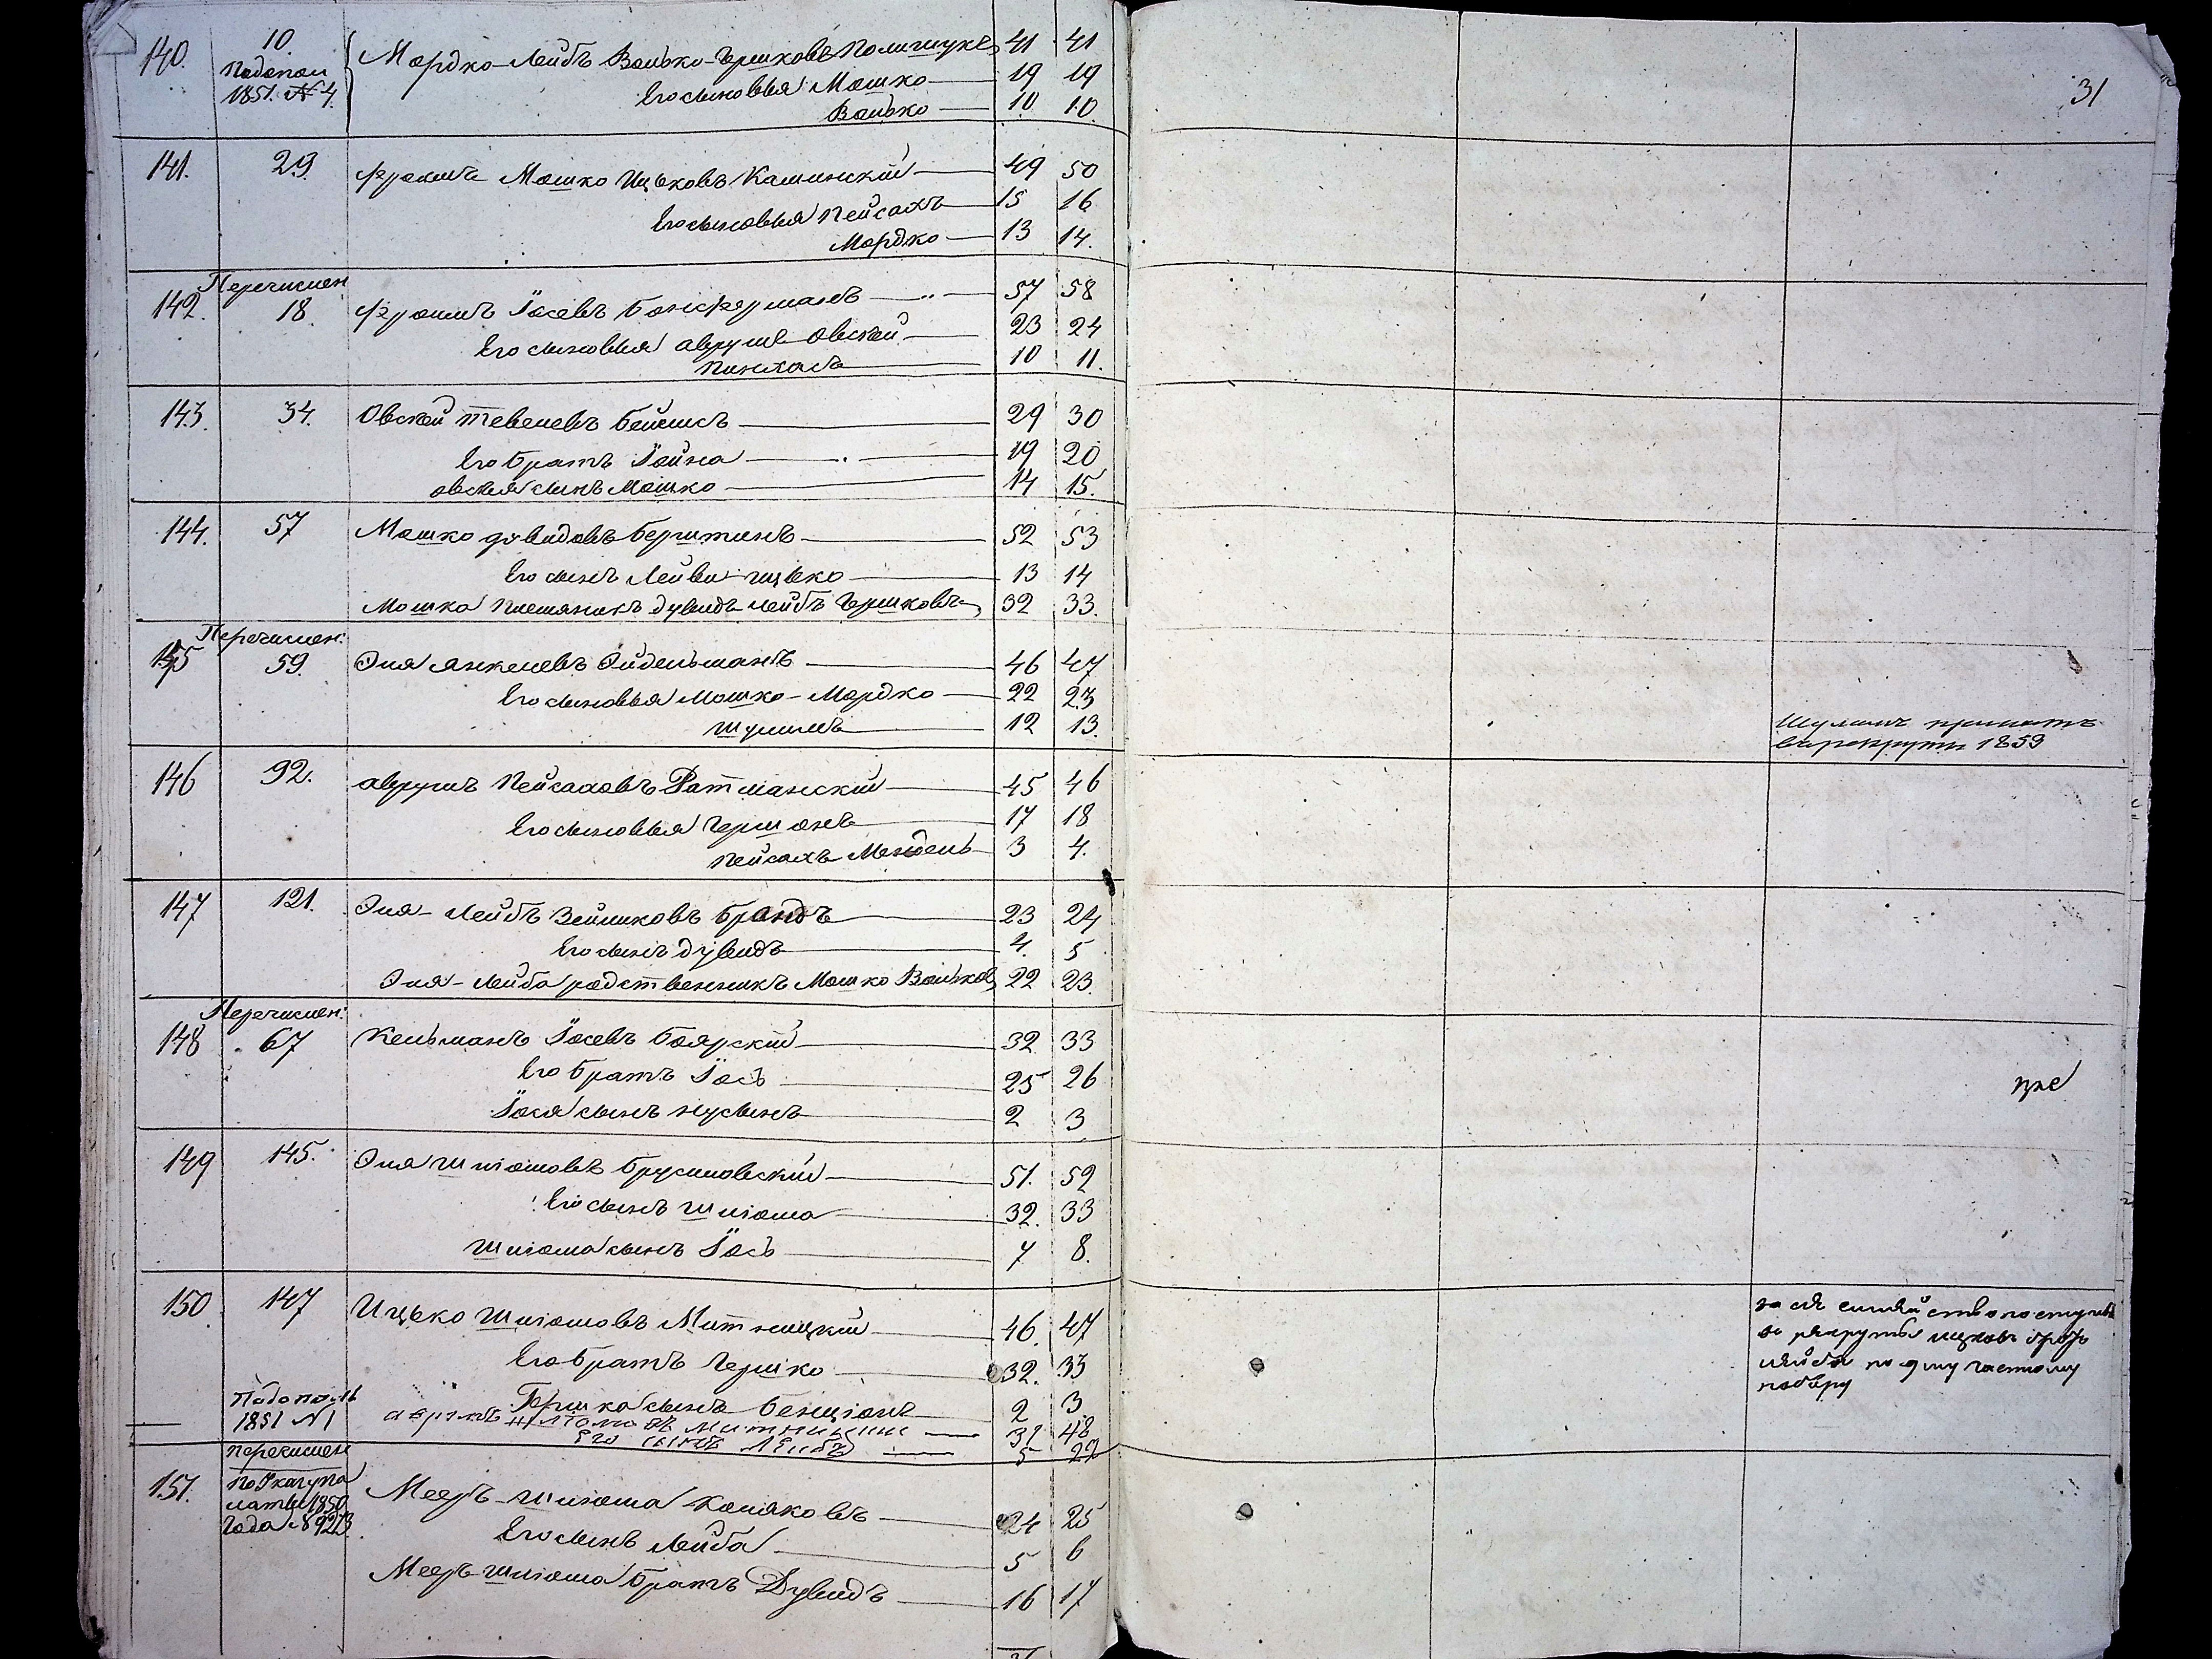 31
140. 10. Мордко-Лейбъ Волько-Гершковъ Полищукъ 41 41
Подопол
1851. №4. Его сыновья Мошко 19 19
Волько 10 10.
141. 29. Фроимъ Мошко Ицьковъ Каминскій 49 50
Его сыновья Пейсахъ 15 16
Мордко 13 14.
Перечислен
142. 18. Фроимъ Іосевъ 57 58
Его сыновья Аврумъ Овсей 23 24
Пинхасъ 10 11.
143. 34. Овсей Тевелевъ 29 30
Его братъ Іойна 19 20
Овсея сынъ Мошко 14 15.
144. 57 Мошко Дувидовъ 52 53
Его сынъ Лейви-Ицько 13 14
Мошка племяникъ Дувидъ Лейбъ Гершковъ 32 33.
Перечислен:
145 59. Эля Янкелевъ Эйдельманъ 46 47
Его сыновья Мошко-Мордко 22 23
Шулимъ 12 13.
Шулимъ принятъ
въ рекруты 1859
146 92. Аврумъ Пейсаховъ Ратманскій 45 46
Его сыновья Гершонъ 17 18
Пейсахъ Мендель 3 4.
147 121. Эля-Лейбъ Зейликовъ Брандъ 23 24
Его сынъ Дувидъ 4. 5
Эля-Лейба родственникъ Мошко Вольковъ 22 23.
Перечислен:
148 67 Кельманъ Іосевъ Боярскій 32 33
Его братъ Іось 25 26
Іося сынъ Нусынъ 2 3
149 145. Эля Шліомовъ Брусиловскій 51. 52
Его сынъ Шліома 32. 33
Шліома сынъ Іось 7 8.
150. 147 Ицько Шліомовъ Митницкій 46. 47
Его братъ Гершко 32. 33
Гершка сынъ Бенціонъ 2 3
Подополь
1851 №1 Шліомовъ Митницкій 31 48
Его сынъ Лейбъ 5 22
за сіе семейство поступилъ
въ рекруты Ицковъ братъ
Лейба по частному
набору
перечислен
151. По Указу Па
латы 1850
Года №9213. Мееръ-Шліома Коляковъ 24 25
Его сынъ Лейба 5 6
Мееръ-Шліома братъ Дувидъ 16 17